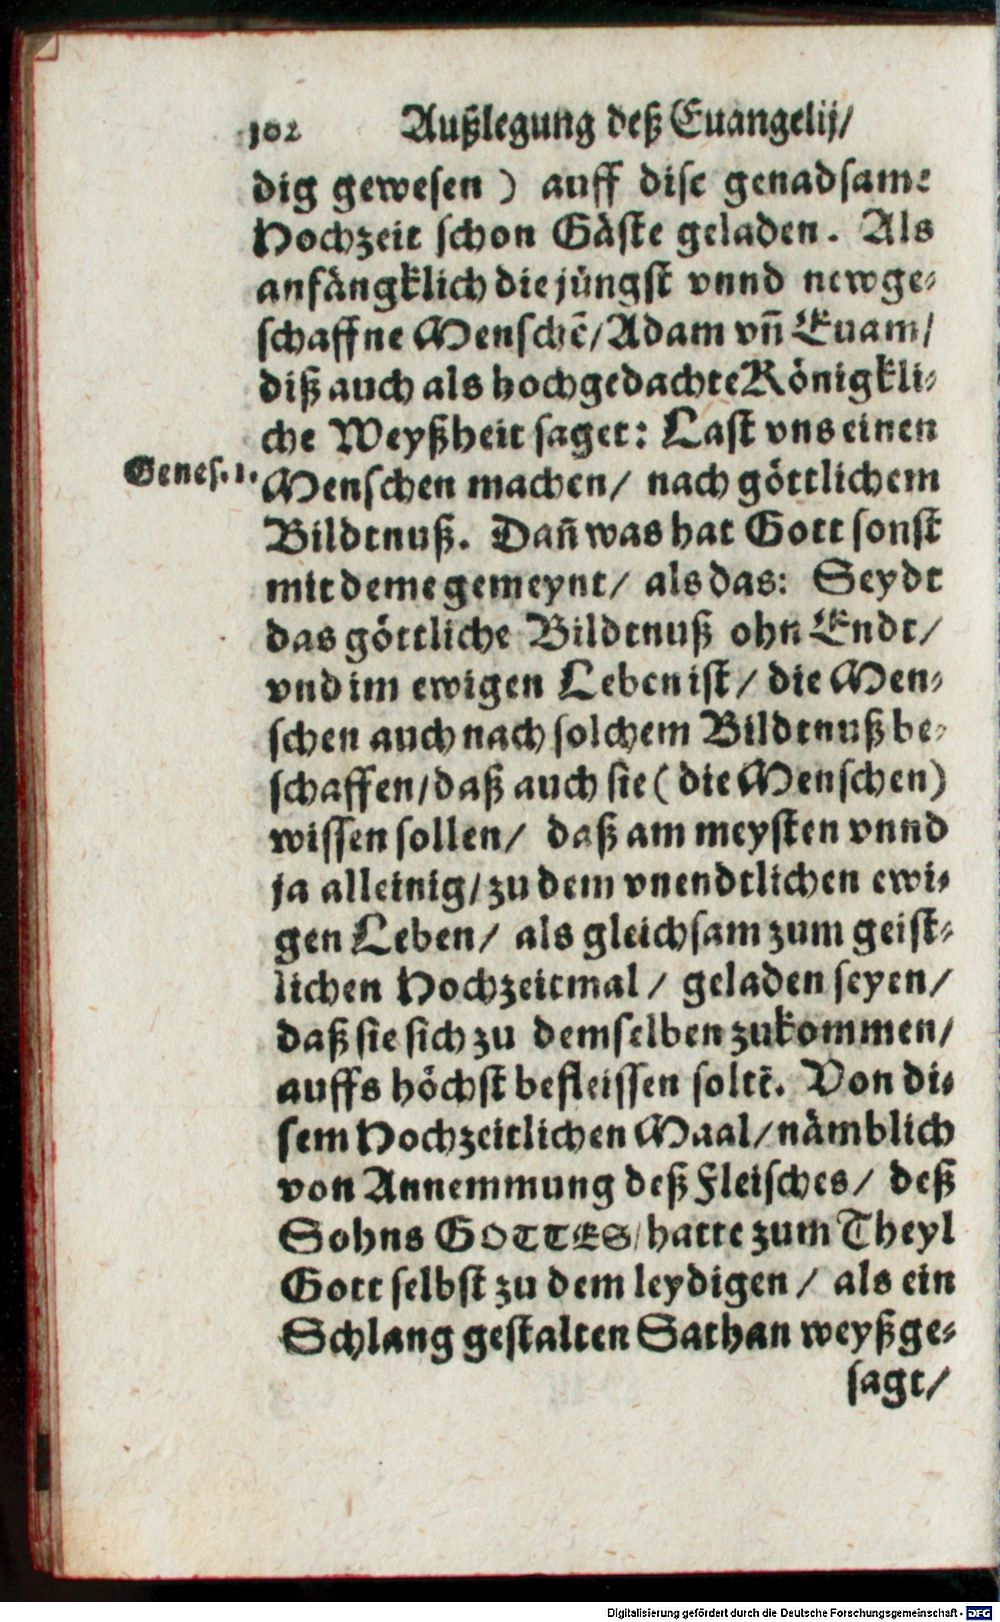 102 Außlegung deß Euangelij/
dig gewesen) auff dise genadsame
Hochzeit schon Gäste geladen. Als
anfängklich die jüngst vnnd newge-
schaffne Menschẽ/ Adam vñ Euam/
diß auch als hochgedachte Königkli-
che Weyßheit saget: Last vns einen
Genes. 1. Menschen machen/ nach göttlichem
Bildtnuß. Dañ was hat Gott sonst
mit deme gemeynt/ als das: Seydt
das göttliche Bildtnuß ohn Endt/
vnd im ewigen Leben ist/ die Men-
schen auch nach solchem Bildtnuß be-
schaffen/ daß auch sie (die Menschen)
wissen sollen/ daß am meysten vnnd
ja alleinig/ zu dem vnendtlichen ewi-
gen Leben/ als gleichsam zum geist-
lichen Hochzeitmal/ geladen seyen/
daß sie sich zu demselben zukommen/
auffs höchst befleissen soltẽ. Von di-
sem Hochzeitlichen Maal/ nämblich
von Annemmung deß Fleisches/ deß
Sohns GOTTES/ hatte zum Theyl
Gott selbst zu dem leydigen/ als ein
Schlang gestalten Sathan weyßge-
sagt/
Digitalisierung gefördert durch die Deutsche Forschungsgemeinschaft - DFG